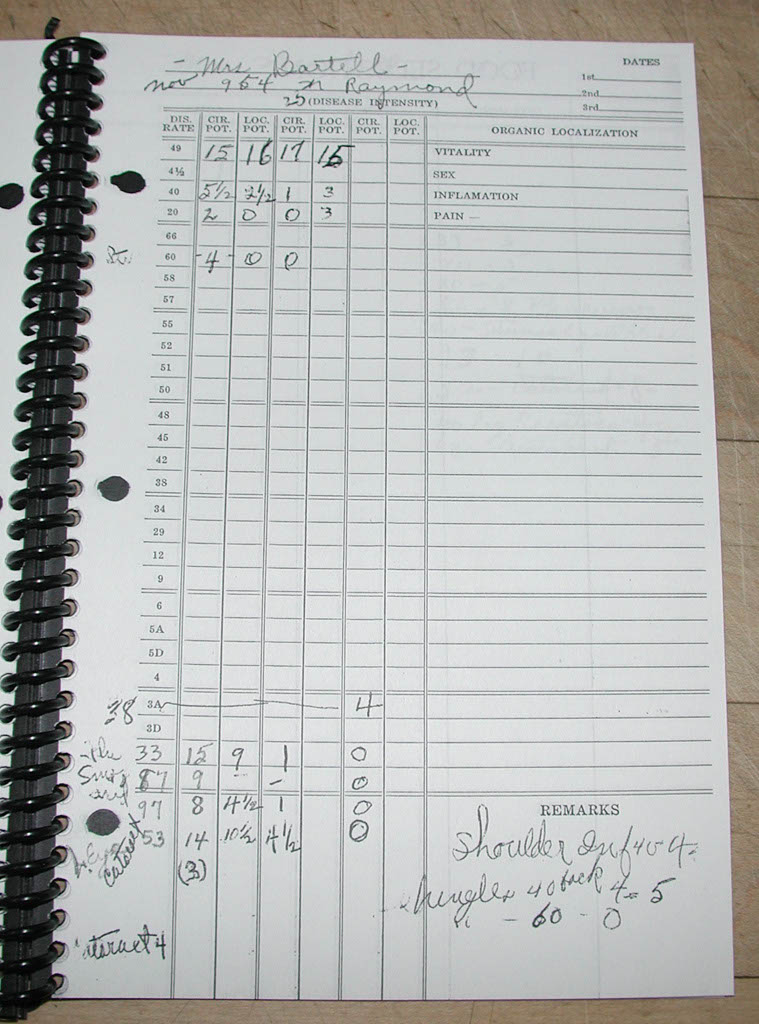 - Mrs Bartell -
DATES
1st
Nov 954 Raymond
2nd
3rd
(DISEASE INTENSITY)
DIS. RATE CIR. POT. LOC. POT. CIR. POT. LOC. POT. CIR. POT. LOC. POT. ORGANIC LOCALIZATION
49 15 16 17 15 VITALITY
4½ SEX
40 5½ 2½ 1 3 INFLAMATION
20 2 0 0 3 PAIN —
66
60 -4- 0 0
58
57
55
52
51
50
48
45
42
38
34
29
12
9
6
5A
5D
4
38 3A 4
3D
33 15 9 1 0
87 9 - - 0
97 8 4½ 1 0
REMARKS
Cataract 53 14 10½ 4½ 0
Shoulder Inf 40-4-
(3)
40 back 4-5
- 60 - 0
Cataract 4